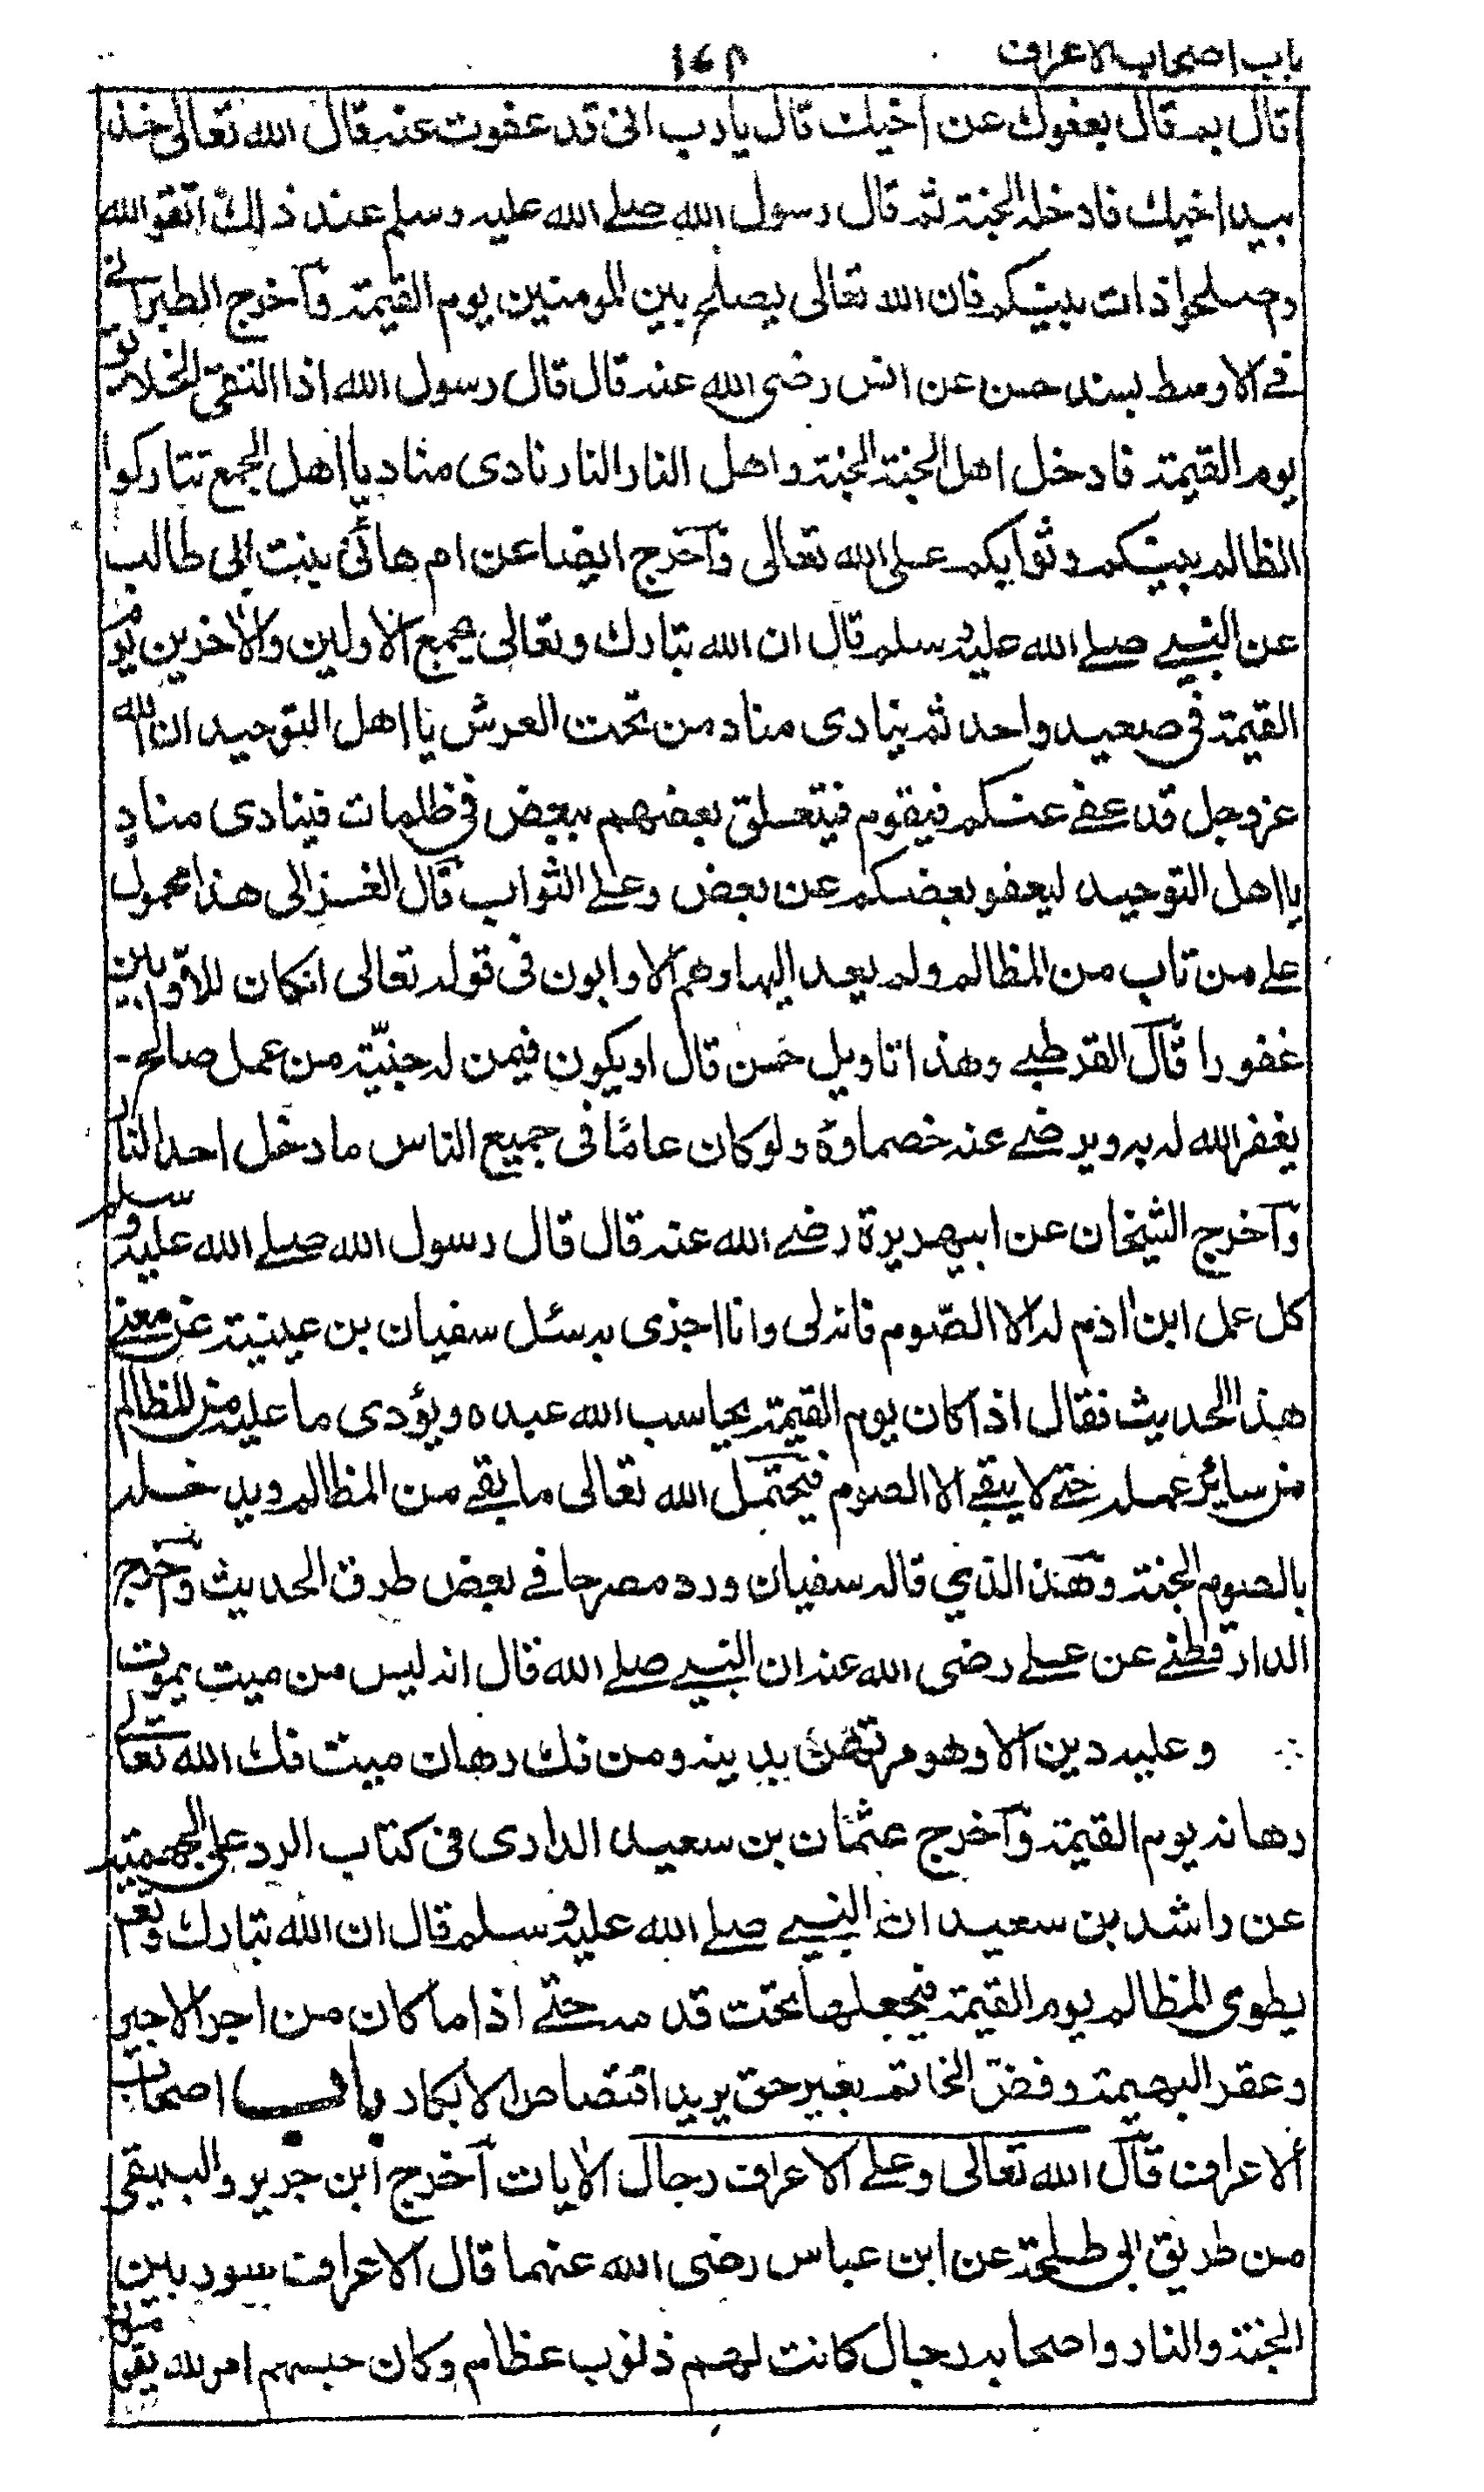 باب اصحاب الاعراف ١٦٢
قال بم قال بعفوك عن اخيك قال يا رب انى قد عفوت عنه قال الله تعالى خذ
بيد اخيك فادخله الجنة ثم قال رسول الله صلے الله عليه وسلم عند ذلك اتقو الله
وصلحوا ذات بينكم فان الله تعالى يصلح بين المومنين يوم القيمة وآخرج الطبرانے
فے الاوسط بسند حسن عن انس رضى الله عنه قال قال رسول الله اذا التقى الخلائق
يوم القيمة فادخل اهل الجنة الجنة واهل النار النار نادى مناد يا اهل الجمع تتاركوا
الظالم بينكم وثوابكم على الله تعالى وآخرج ايضا عن ام هانئ بنت ابى طالب
عن النبے صلے الله عليه وسلم قال ان الله تبارك وتعالى يجمع الاولين والاخرين يوم
القيمة فى صعيد واحد ثم ينادى مناد من تحت العرش يا اهل التوحيد ان الله
عزوجل قد عفے عنكم فيقوم فيتعلق بعضهم ببعض فى ظلمات فينادى منادٍ
يا اهل التوحيد ليعفو بعضكم عن بعض وعلے الثواب قال الغزالى هذا محمول
علے من تاب من المظالم ولم يعد اليها وهم الاوابون فى قوله تعالى انه كان للاوّابين
غفورا قال القرطبے وهذا تاويل حسن قال او يكون فيمن له خبيّة من عمل صالح -
يغفر الله له به ويرضے عنه خصماؤه ولو كان عامًا فى جميع الناس ما دخل احد النار
وآخرج الشيخان عن ابيهريرة رضے الله عنه قال قال رسول الله صلے الله عليه وسلم
كل عمل ابن اٰدم له الا الصّوم فانه لى وانا اجزى به سئل سفيان بن عيينة عن معنے
هذا الحديث فقال اذا كان يوم القيمة يحاسب الله عبده ويؤدى ما عليه من المظالم
من سائر عمله حتے لا يبقے الا الصوم فيتحمّل الله تعالى ما بقے من المظالم ويدخله
بالصوم الجنة وهذا الذي قاله سفيان ورد مصرحا فے بعض طرق الحديث وآخرج
الدارقطنے عن علے رضى الله عنه ان النبے صلے الله قال انه ليس من ميت يموت
وعليه دين الا وهو مرتهن بدينه ومن فك رهان ميت فك الله تعالے
رهانه يوم القيمة وآخرج عثمان بن سعيد الدارى فى كتاب الرد على الجهمية
عن راشد بن سعيد ان النبے صلے الله عليه وسلم قال ان الله تبارك وتعم
يطوى المظالم يوم القيمة فيجعلها تحت قدمه حتے اذا ما كان من اجر الاجير
وعقر البهيمة وفض الخاتم بغير حق يريد اقتصاص الابكار باب اصحاب
ألاعراف قال الله تعالى وعلے الاعراف رجال الايات آخرج ابن جرير والبيهقى
من طريق ابى طلحة عن ابن عباس رضى الله عنهما قال الاعراف سور بين
الجنة والنار واصحابه رجال كانت لهم ذنوب عظام وكان حبسهم امر لله